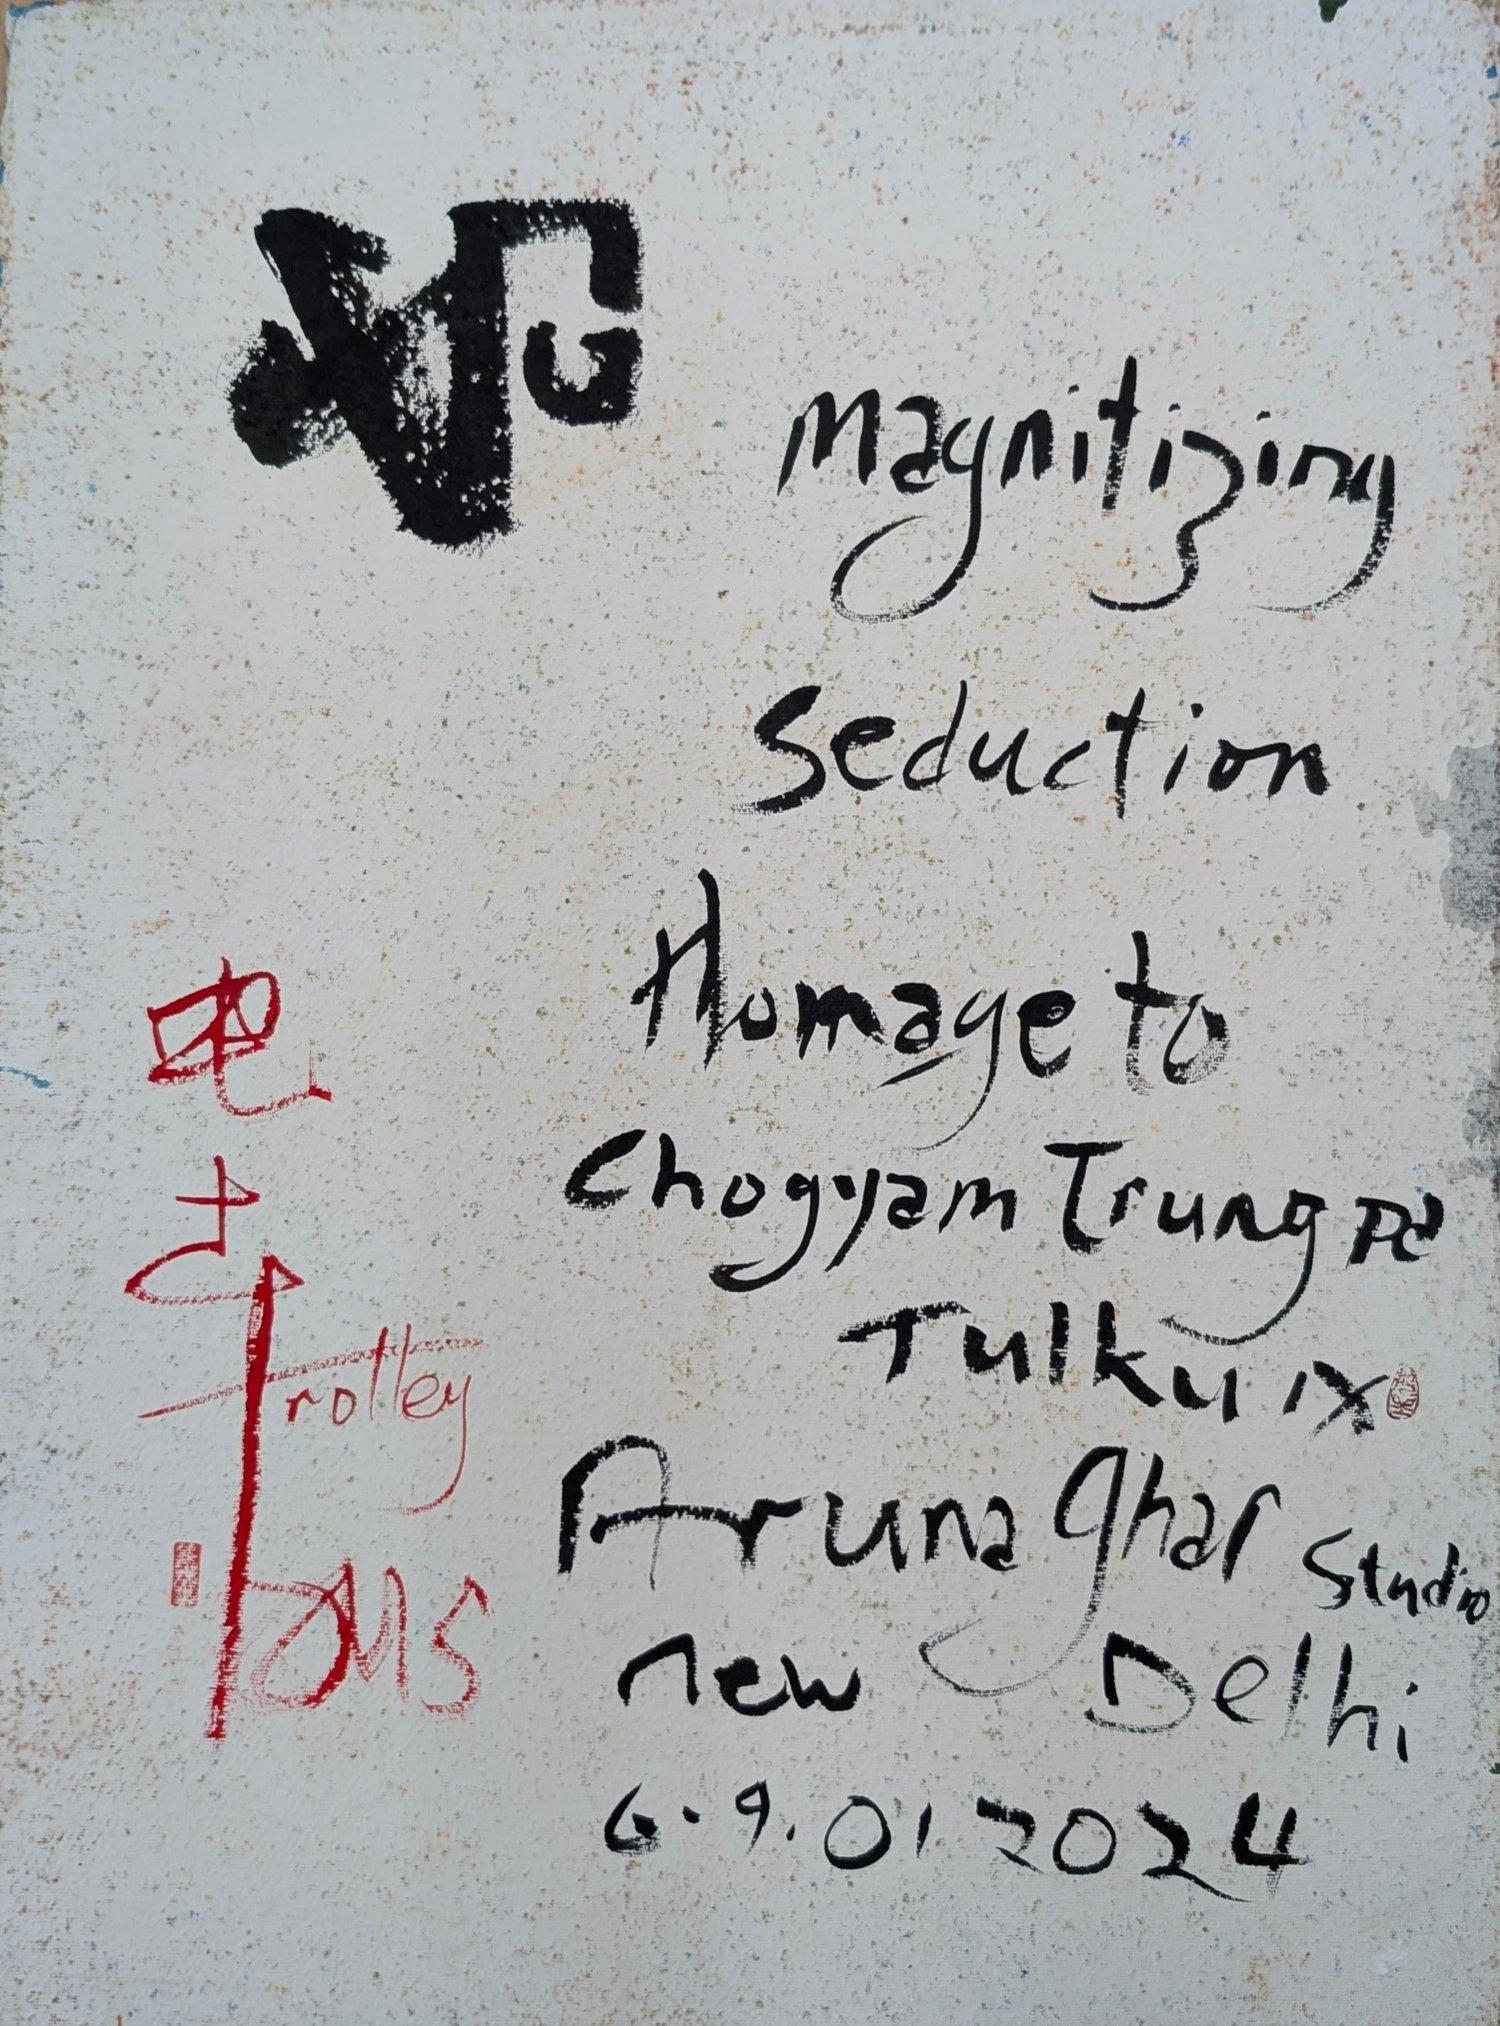 Magnitizing
Seduction
Homage to
Chogyam Trungpa
Tulku IX
Aruna Ghar Studio
New Delhi
6.9.01 2024
电车
trolley
bus